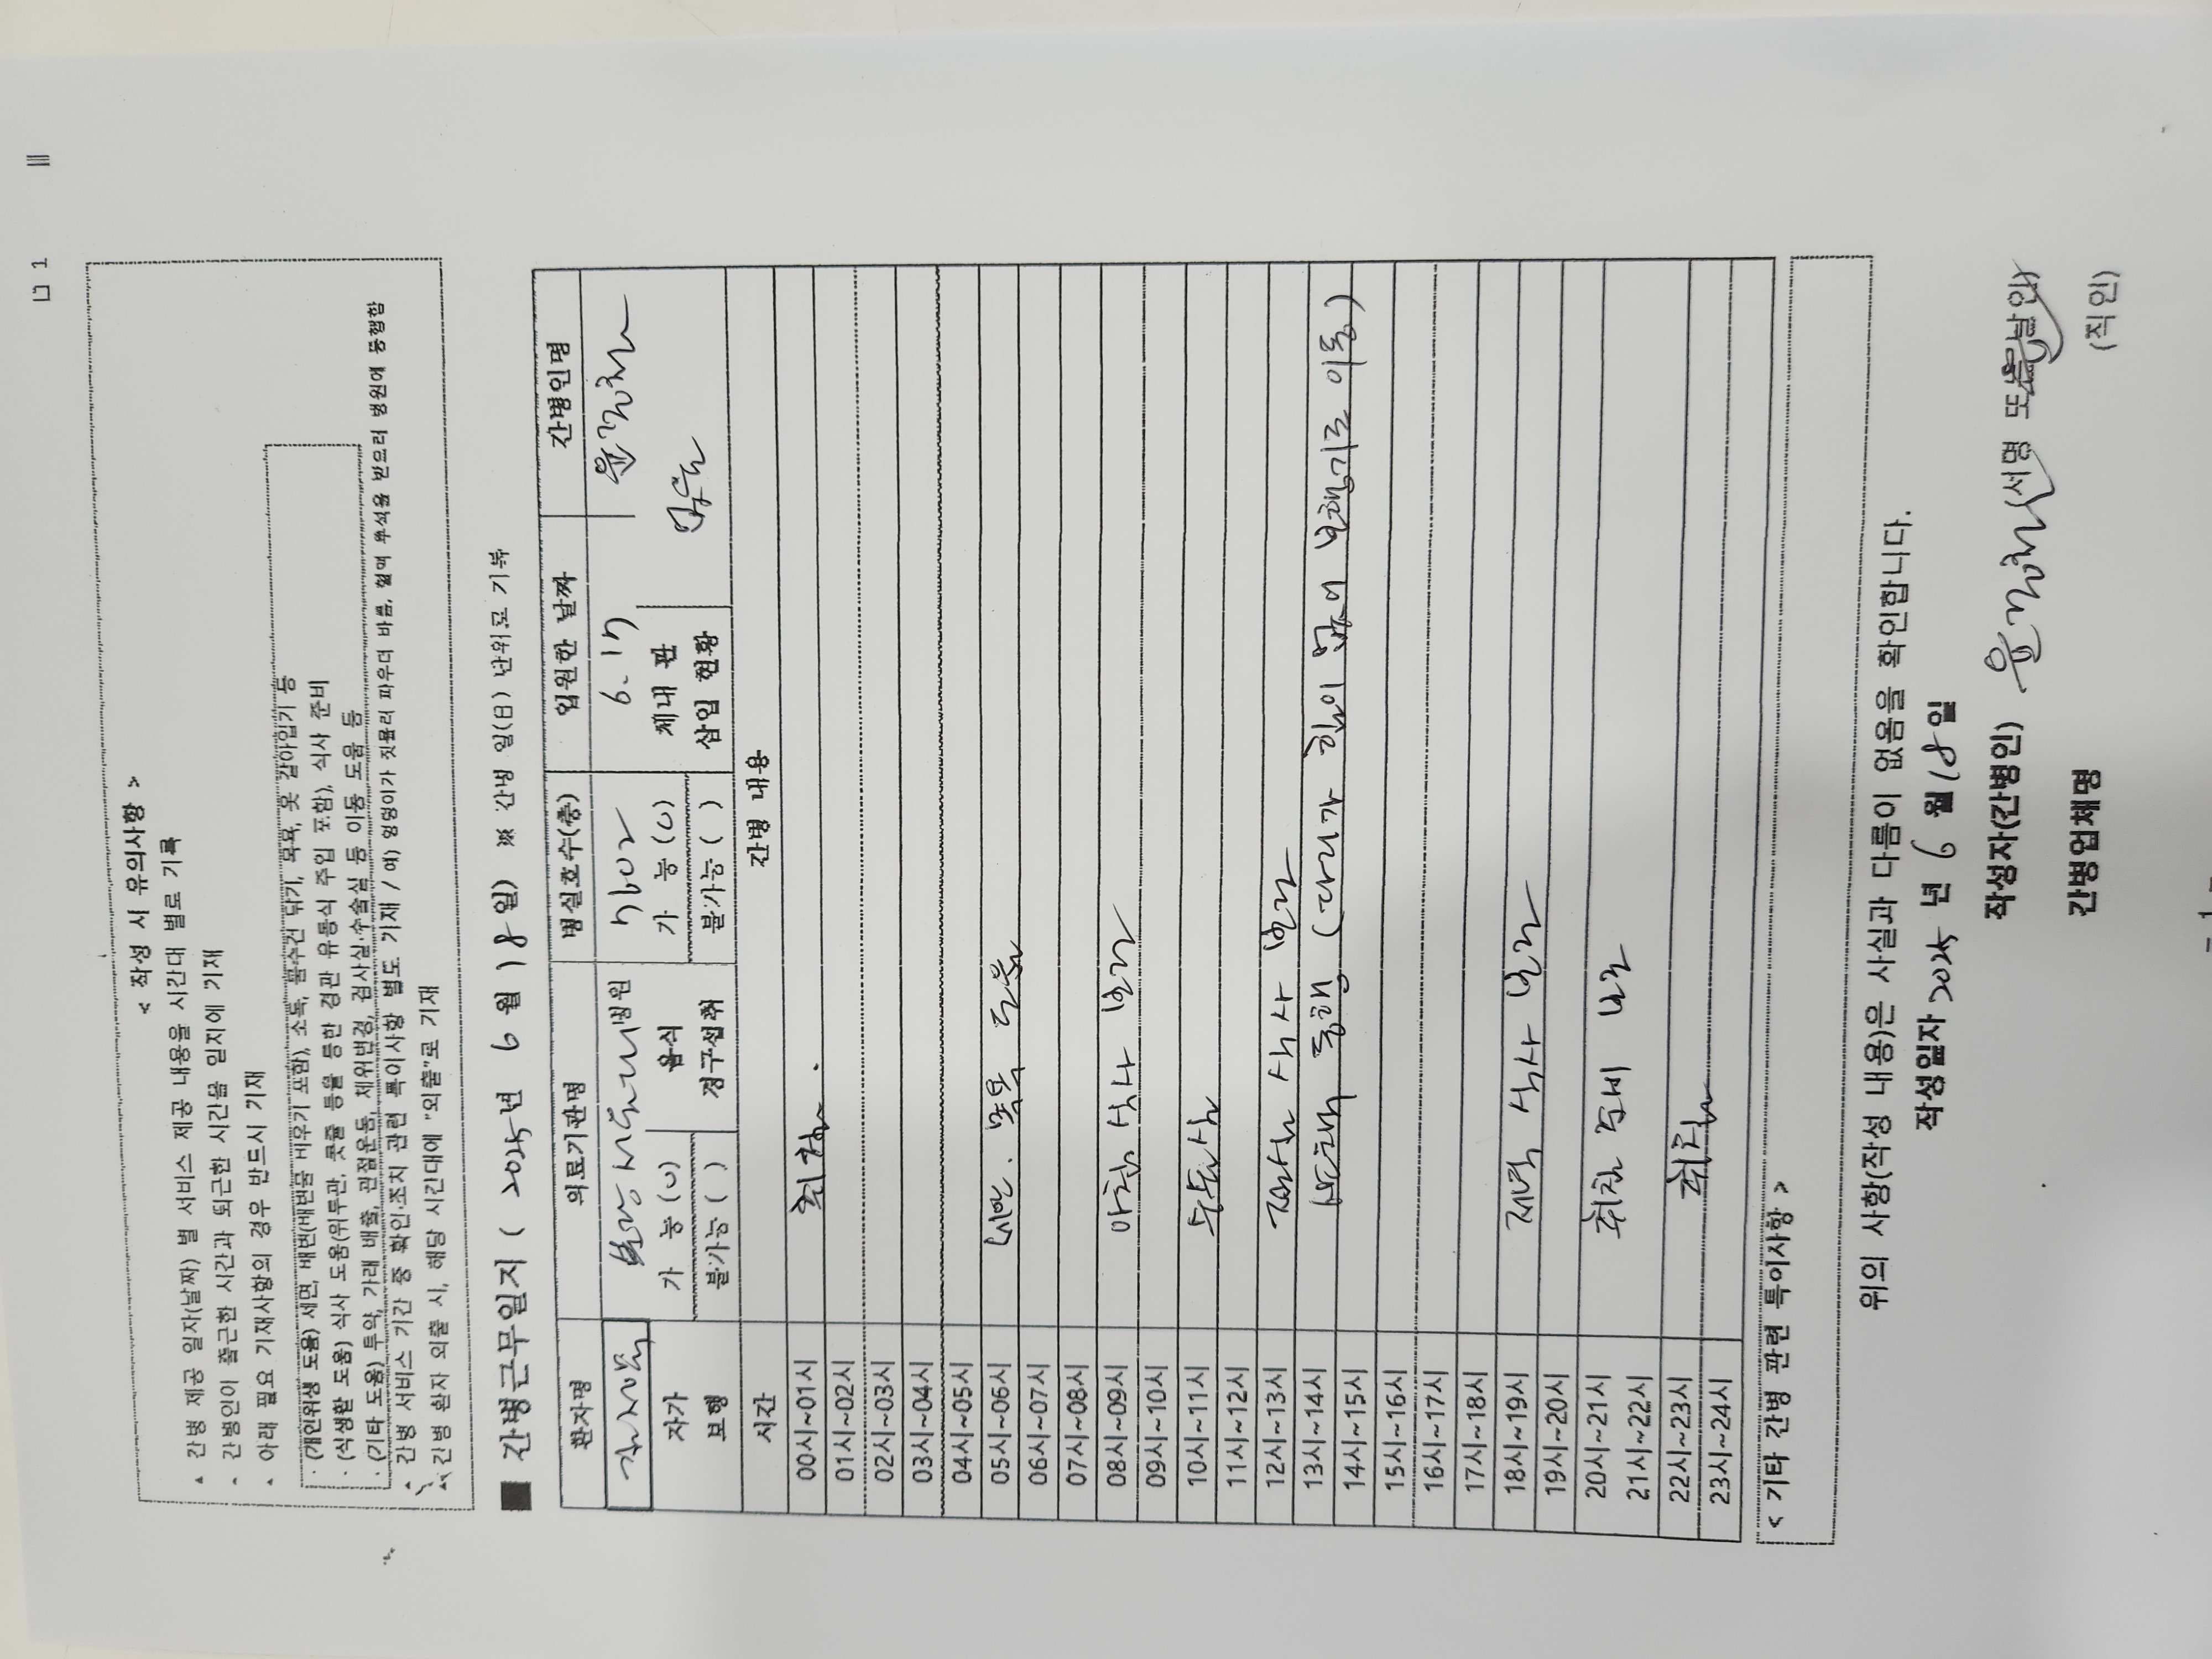 ㅁ 1 |||
< 작성 시 유의사항 >
▲ 간병 제공 일자(날짜) 별 서비스 제공 내용을 시간대 별로 기록
▲ 간병인이 출근한 시간과 퇴근한 시간을 일지에 기재
▲ 아래 필요 기재사항의 경우 반드시 기재
· (개인위생 도움) 세면, 배변(배변물 비우기 포함), 소독, 물수건 닦기, 목욕, 옷 갈아입기 등
· (식생활 도움) 식사 도움(위루관, 콧줄 등을 통한 경관 유동식 주입 포함), 식사 준비
· (기타 도움) 투약, 가래 배출, 관절운동, 체위변경, 검사실·수술실 등 이동 도움 등
▲ 간병 서비스 기간 중 확인·조치 관련 특이사항 별도 기재 / 예) 엉덩이가 짓물러 파우더 바름, 혈액 투석을 받으러 병원에 동행함
▲ 간병 환자 외출 시, 해당 시간대에 "외출"로 기재
■ 간병근무일지 ( 2025년 6 월 18일) ※ 간병 일(日) 단위로 기록
환자명 의료기관명 병실호수(층) 입원한 날짜 간병인명
병원 7602 6.17
자가 보행 가 능 (O) 불가능 ( ) 음식 경구섭취 가 능 (O) 불가능 ( ) 체내 관 삽입 현황 없음
시간 간병 내용
00시~01시 취침.
01시~02시
02시~03시
03시~04시
04시~05시
05시~06시 세안. 목욕 도움
06시~07시
07시~08시
08시~09시 아침 식사 보조
09시~10시
10시~11시
11시~12시
12시~13시 점심 식사 보조
13시~14시 산책 동행 (다리가 힘이 없어 보행기로 이동)
14시~15시
15시~16시
16시~17시
17시~18시
18시~19시 저녁 식사 보조
19시~20시
20시~21시 취침 준비
21시~22시
22시~23시 취침
23시~24시
< 기타 간병 관련 특이사항 >
위의 사항(작성 내용)은 사실과 다름이 없음을 확인합니다.
작성일자 2025 년 6 월 18일
작성자(간병인) (서명 또는 날인)
간병업체명 (직인)